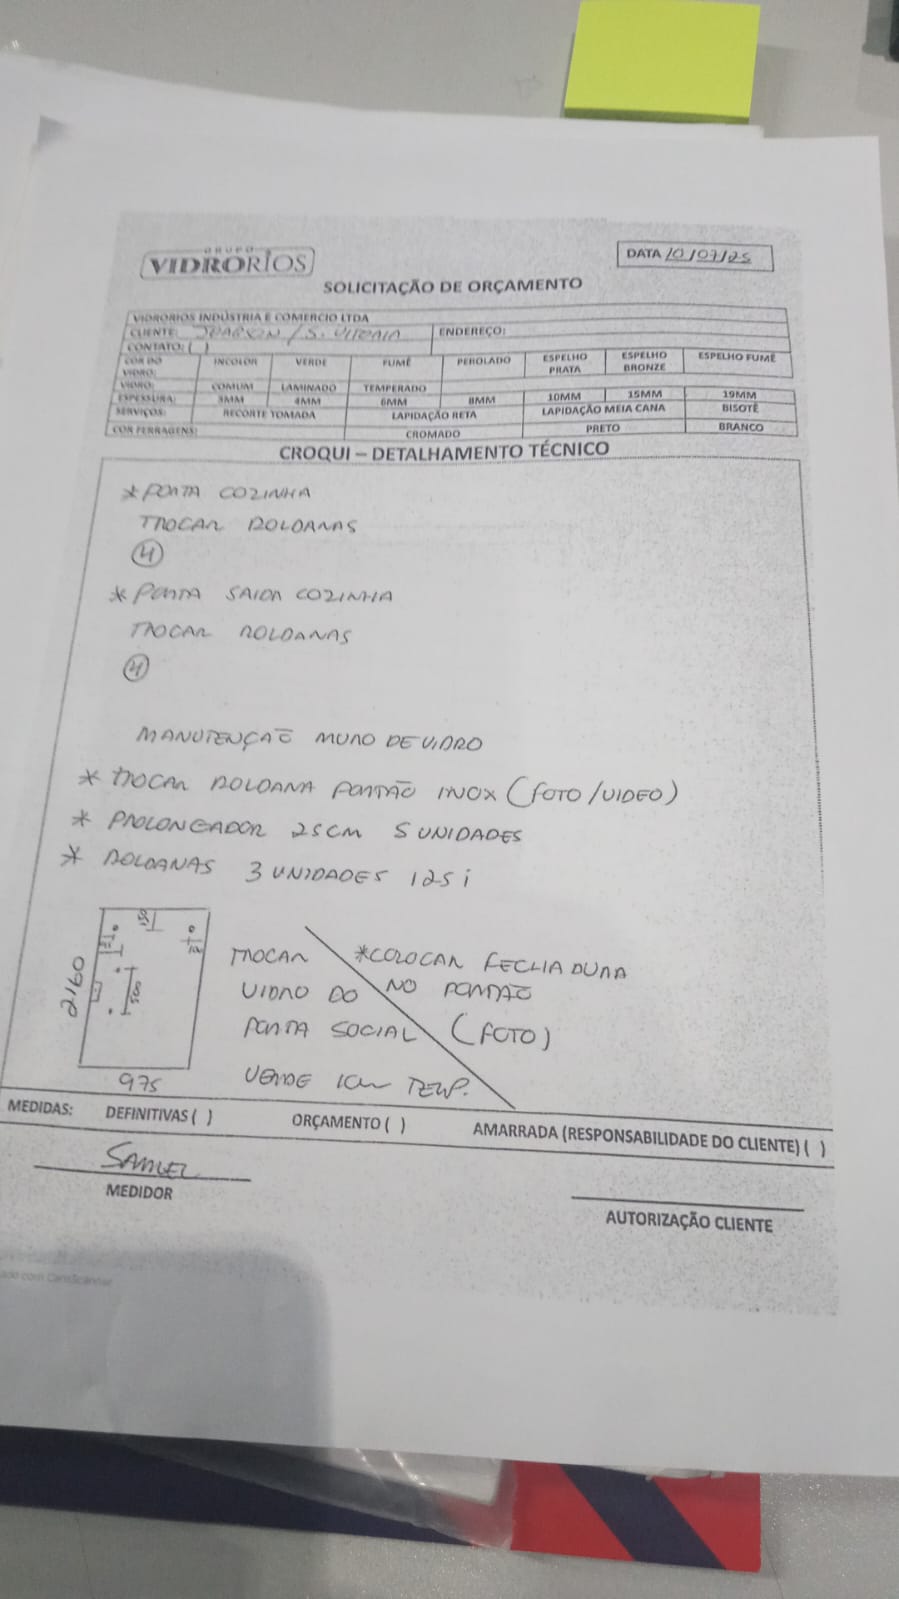 GRUPO
VIDRORIOS
DATA 10/07/25
SOLICITAÇÃO DE ORÇAMENTO
VIDRORIOS INDÚSTRIA E COMERCIO LTDA
CLIENTE: / S. VITORIA ENDEREÇO:
CONTATO: ( )
COR DO VIDRO: INCOLOR VERDE FUMÊ PEROLADO ESPELHO PRATA ESPELHO BRONZE ESPELHO FUMÊ
VIDRO: COMUM LAMINADO TEMPERADO
ESPESSURA: 3MM 4MM 6MM 8MM 10MM 15MM 19MM
SERVIÇOS: RECORTE TOMADA LAPIDAÇÃO RETA LAPIDAÇÃO MEIA CANA BISOTÊ
COR FERRAGENS: CROMADO PRETO BRANCO
CROQUI – DETALHAMENTO TÉCNICO
* PORTA COZINHA
TROCAR ROLDANAS
4
* PORTA SAIDA COZINHA
TROCAR ROLDANAS
4
MANUTENÇÃO MURO DE VIDRO
* TROCAR ROLDANA PORTÃO INOX (FOTO/VIDEO)
* PROLONGADOR 25CM 5 UNIDADES
* ROLDANAS 3 UNIDADES 125i
2160
500
975
TROCAR
VIDRO DO
PORTA SOCIAL
VERDE 10mm TEMP.
*COLOCAR FECHADURA
NO PORTÃO
(FOTO)
MEDIDAS: DEFINITIVAS ( ) ORÇAMENTO ( ) AMARRADA (RESPONSABILIDADE DO CLIENTE) ( )
SAMUEL
MEDIDOR
AUTORIZAÇÃO CLIENTE
ado com CamScanner